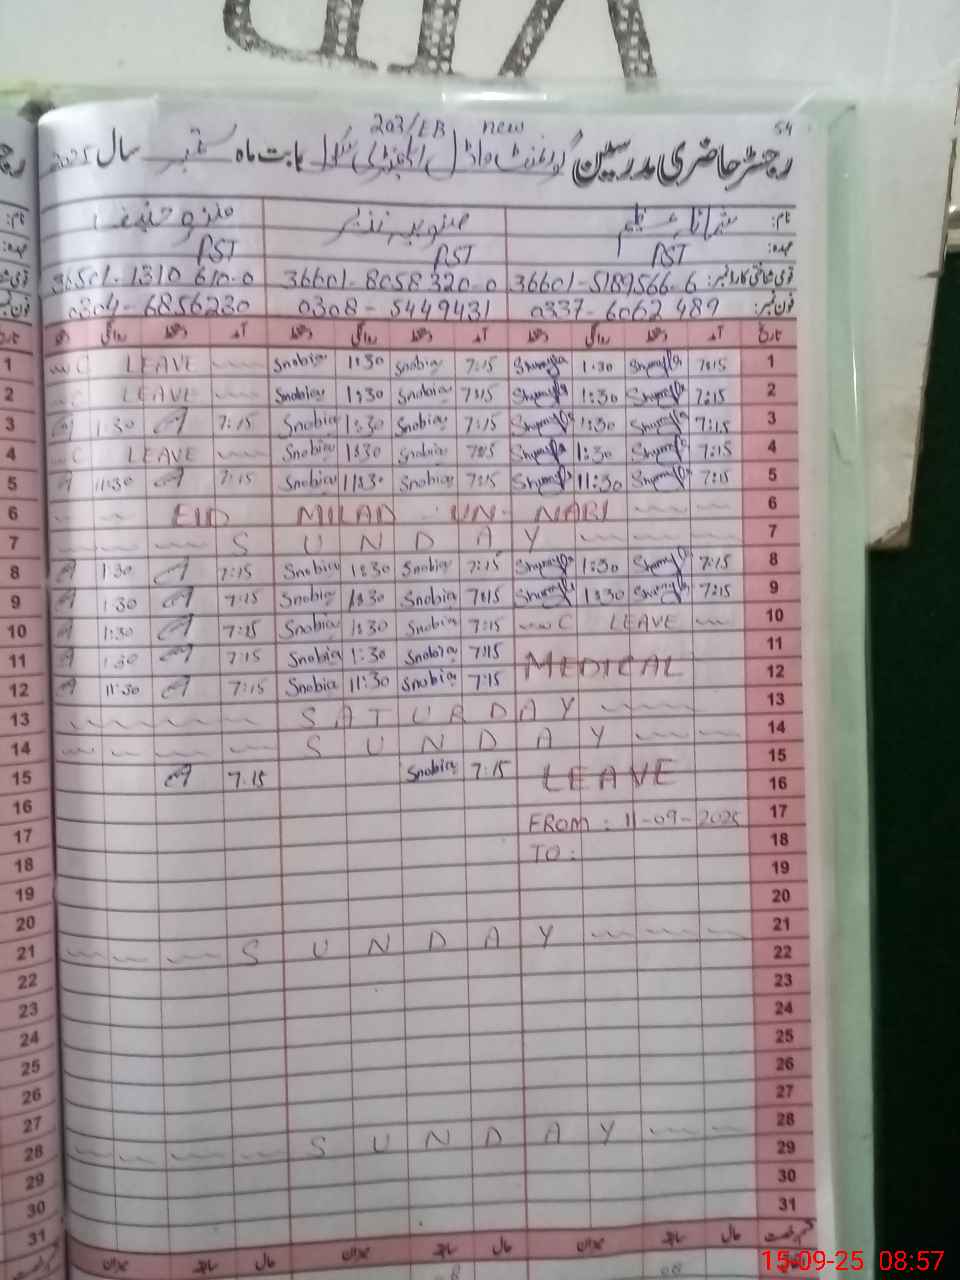 VIP
203/EB new 54
رجسٹر حاضری مدرسین گورنمنٹ ماڈل ایلیمنٹری سکول بابت ماہ ستمبر سال 2025
نام:
عہدہ: PST PST PST
قومی شناختی کارڈ نمبر: 36601-5189566-6 36601-8058320-0 36501-1310610-0
فون نمبر: 0337-6062489 0308-5449431 0304-6856230
تاریخ آمد دستخط روانگی دستخط آمد دستخط روانگی دستخط آمد دستخط روانگی
1 C LEAVE Snobia 1:30 Snobia 7:15 1:30 7:15 1
2 C LEAVE Snobia 1:30 Snobia 7:15 1:30 7:15 2
3 1:30 7:15 Snobia 1:30 Snobia 7:15 1:30 7:15 3
4 C LEAVE Snobia 1:30 Snobia 7:15 1:30 7:15 4
5 11:30 7:15 Snobia 11:30 Snobia 7:15 11:30 7:15 5
6 EID MILAD UN- NABI 6
7 S U N D A Y 7
8 1:30 7:15 Snobia 1:30 Snobia 7:15 1:30 7:15 8
9 1:30 7:15 Snobia 1:30 Snobia 7:15 1:30 7:15 9
10 1:30 7:15 Snobia 1:30 Snobia 7:15 C LEAVE 10
11 1:30 7:15 Snobia 1:30 Snobia 7:15 MEDICAL 11
12 11:30 7:15 Snobia 11:30 Snobia 7:15 12
13 S A T U R D A Y 13
14 S U N D A Y 14
15 7:15 Snobia 7:15 LEAVE 15
16 16
17 FROM: 11-09-2025 17
18 TO: 18
19 19
20 20
21 S U N D A Y 21
22 22
23 23
24 24
25 25
26 26
27 27
28 S U N D A Y 28
29 29
30 30
31 31
میزان سابقہ حال میزان سابقہ حال میزان سابقہ حال
15-09-25 08:57